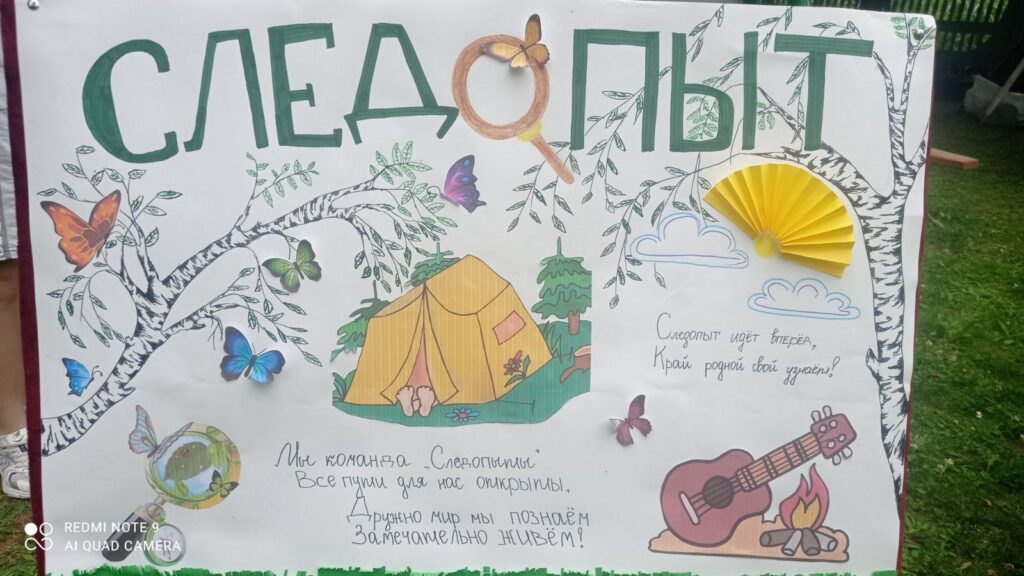 СЛЕДОПЫТ
Следопыт идёт вперёд,
Край родной свой узнаёт!
Мы команда „Следопыты"
Все пути для нас открыты,
Дружно мир мы познаём
Замечательно ЖИВЁМ!
REDMI NOTE 9
AI QUAD CAMERA